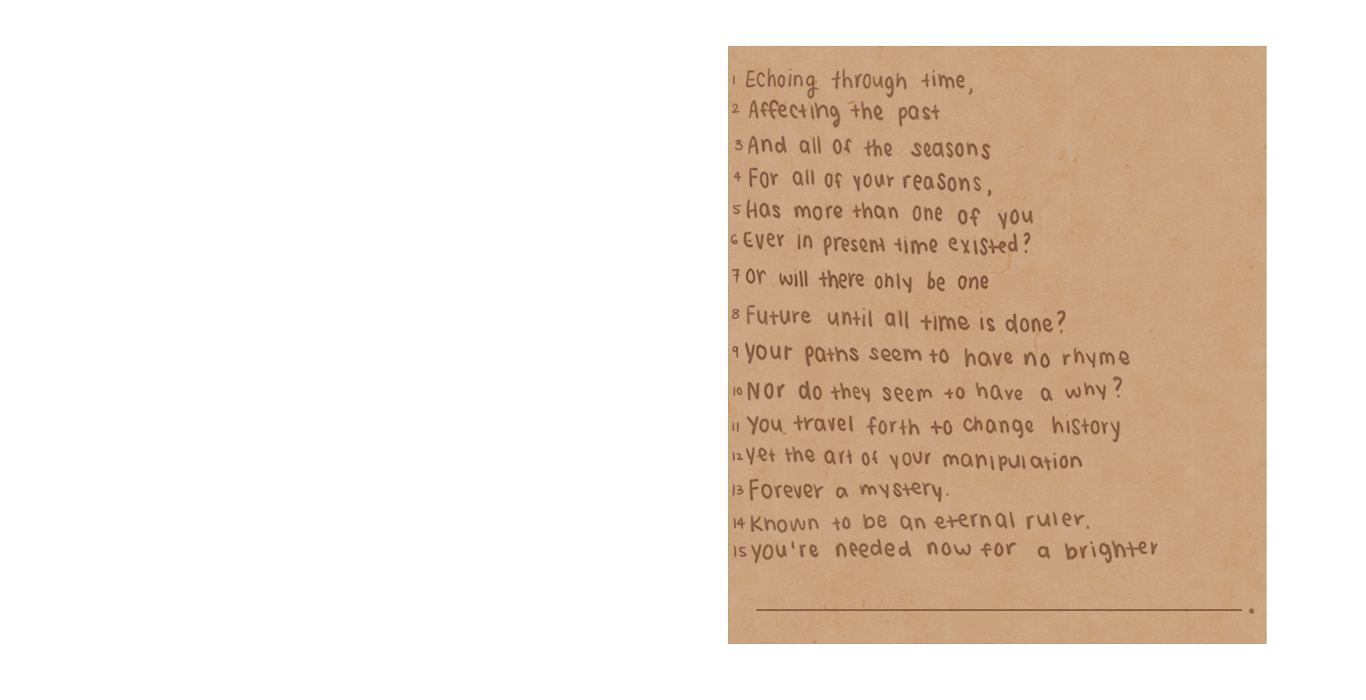 1 Echoing through time,
2 Affecting the past
3 And all of the seasons
4 For all of your reasons,
5 Has more than one of you
6 Ever in present time existed?
7 Or will there only be one
8 Future until all time is done?
9 Your paths seem to have no rhyme
10 Nor do they seem to have a why?
11 You travel forth to change history
12 Yet the art of your manipulation
13 Forever a mystery.
14 Known to be an eternal ruler.
15 You're needed now for a brighter